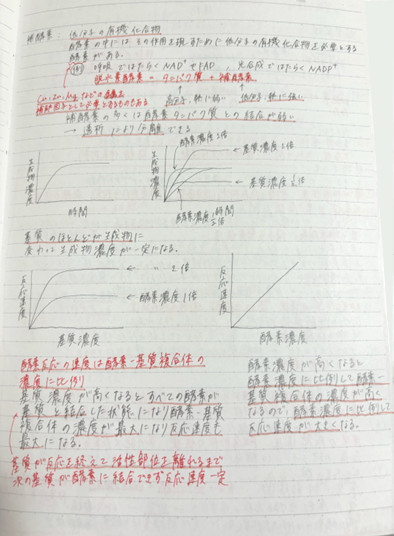 補酵素：低分子の有機化合物
酵素の中には その作用を現すために低分子の有機化合物を必要とする
酵素がある。
(例) 呼吸ではたらく NAD⁺やFAD、光合成ではたらくNADP⁺
脱水素酵素 = タンパク質 + 補酵素
高分子、熱に弱い 低分子、熱に強い
補酵素の多くは酵素タンパク質との結合が弱い
→ 透析により分離できる
生成物濃度
時間
生成物濃度
酵素濃度2倍
基質濃度2倍
基質濃度½倍
酵素濃度½倍
時間
基質のほとんどが生成物に
変わって生成物濃度が一定になる。
反応速度
〃 2倍
酵素濃度1倍
基質濃度
反応速度
酵素濃度
酵素反応の速度は酵素-基質複合体の
濃度に比例
基質濃度が高くなるとすべての酵素が
基質と結合した状態になり酵素-基質
複合体の濃度が最大になり反応速度も
最大になる。
基質が反応を終えて活性部位を離れるまで
次の基質が酵素に結合できず反応速度一定
酵素濃度が高くなると
酵素濃度に比例して酵素-
基質複合体の濃度が高く
なるので、酵素濃度に比例して
反応速度が大きくなる。